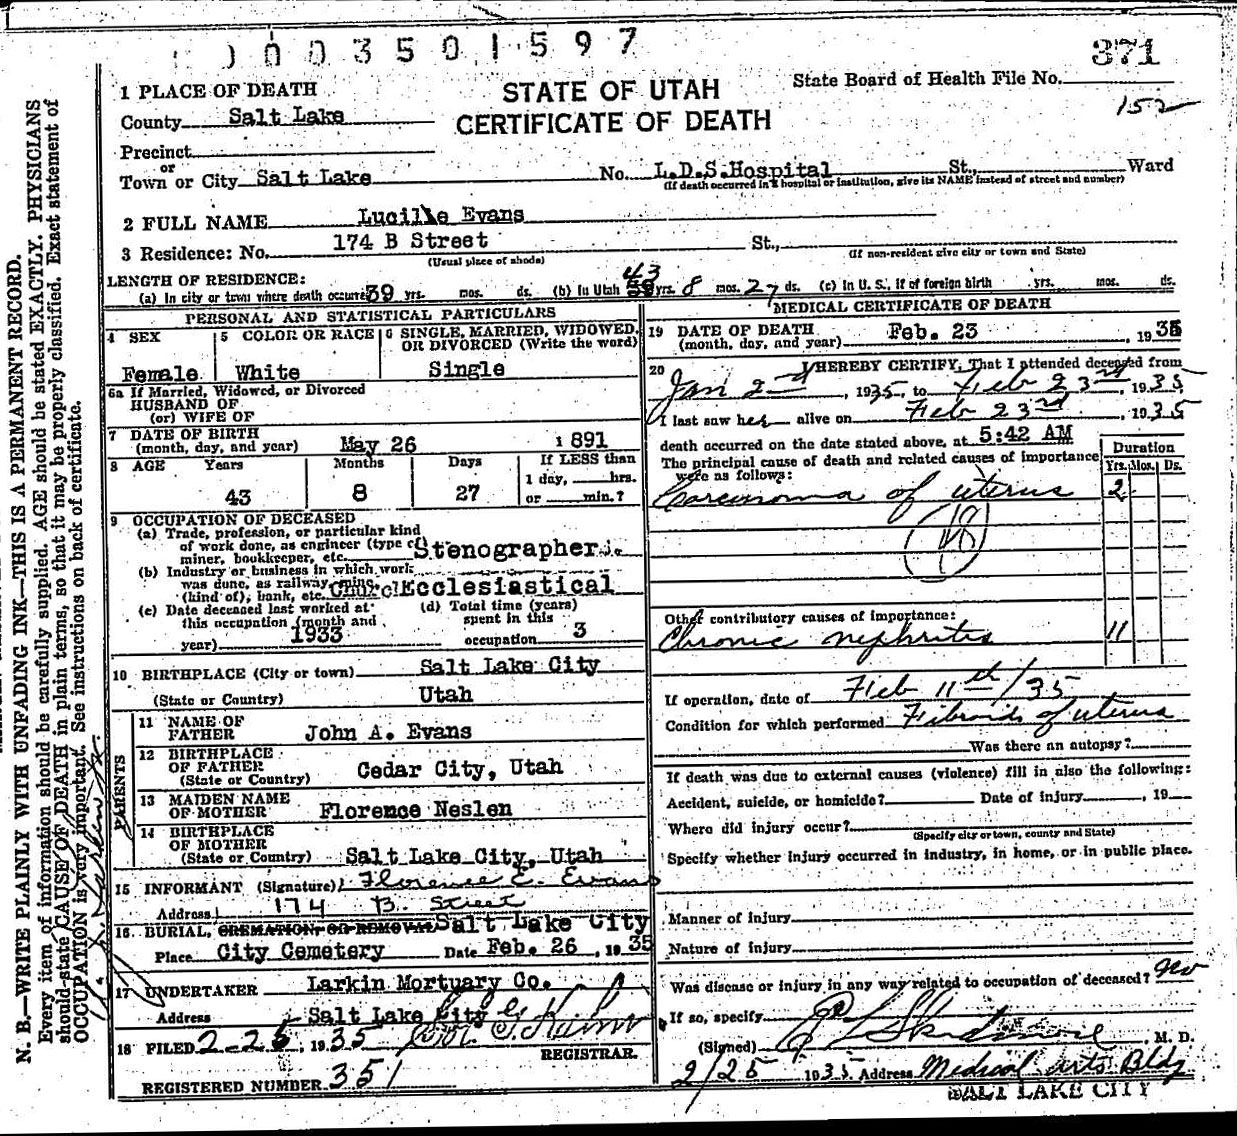 0003501597
371
State Board of Health File No.
152
STATE OF UTAH
CERTIFICATE OF DEATH
1 PLACE OF DEATH
County Salt Lake
Precinct
or
Town or City Salt Lake No. L.D.S. Hospital St., Ward
(If death occurred in a hospital or institution, give its NAME instead of street and number)
2 FULL NAME Lucille Evans
3 Residence: No. 174 B Street St.,
(Usual place of abode) (If non-resident give city or town and State)
LENGTH OF RESIDENCE:
(a) In city or town where death occurred 39 yrs. mos. ds. (b) In Utah 43 yrs. 8 mos. 27 ds. (c) In U. S., if of foreign birth yrs. mos. ds.
PERSONAL AND STATISTICAL PARTICULARS
4 SEX Female
5 COLOR OR RACE White
6 SINGLE, MARRIED, WIDOWED, OR DIVORCED (Write the word) Single
6a If Married, Widowed, or Divorced
HUSBAND OF
(or) WIFE OF
7 DATE OF BIRTH
(month, day, and year) May 26 1891
8 AGE Years Months Days If LESS than
1 day, hrs.
43 8 27 or min.?
9 OCCUPATION OF DECEASED
(a) Trade, profession, or particular kind
of work done, as engineer (type of
miner, bookkeeper, etc. Stenographer
(b) Industry or business in which work
was done, as railway, mine,
(kind of), bank, etc. Church Ecclesiastical
(c) Date deceased last worked at
this occupation (month and
year) 1933
(d) Total time (years)
spent in this
occupation 3
10 BIRTHPLACE (City or town) Salt Lake City
(State or Country) Utah
PARENTS
11 NAME OF
FATHER John A. Evans
12 BIRTHPLACE
OF FATHER
(State or Country) Cedar City, Utah
13 MAIDEN NAME
OF MOTHER Florence Neslen
14 BIRTHPLACE
OF MOTHER
(State or Country) Salt Lake City, Utah
15 INFORMANT (Signature) Florence E. Evans
Address 174 B. Street
16 BURIAL, CREMATION, OR REMOVAL Salt Lake City
Place City Cemetery Date Feb. 26, 1935
17 UNDERTAKER Larkin Mortuary Co.
Address Salt Lake City
18 FILED 2-25, 1935
REGISTRAR.
REGISTERED NUMBER 351
MEDICAL CERTIFICATE OF DEATH
19 DATE OF DEATH
(month, day, and year) Feb. 23 1935
20 I HEREBY CERTIFY, That I attended deceased from
Jan 2nd, 1935 to Feb 23rd, 1935
I last saw her alive on Feb 23rd, 1935
death occurred on the date stated above, at 5:42 AM
The principal cause of death and related causes of importance
were as follows:
Duration
Yrs. Mos. Ds.
Carcinoma of uterus 2
48
Other contributory causes of importance:
Chronic nephritis 11
If operation, date of Feb 11th/35
Condition for which performed Fibroids of uterus
Was there an autopsy?
If death was due to external causes (violence) fill in also the following:
Accident, suicide, or homicide? Date of injury, 19
Where did injury occur?
(Specify city or town, county and State)
Specify whether injury occurred in industry, in home, or in public place.
Manner of injury
Nature of injury
Was disease or injury in any way related to occupation of deceased? No
If so, specify
(Signed) M. D.
2/25 1935 Address Medical Arts Bldg
SALT LAKE CITY
N. B.—WRITE PLAINLY WITH UNFADING INK—THIS IS A PERMANENT RECORD.
Every item of information should be carefully supplied. AGE should be stated EXACTLY. PHYSICIANS
should state CAUSE OF DEATH in plain terms, so that it may be properly classified. Exact statement of
OCCUPATION is very important. See instructions on back of certificate.